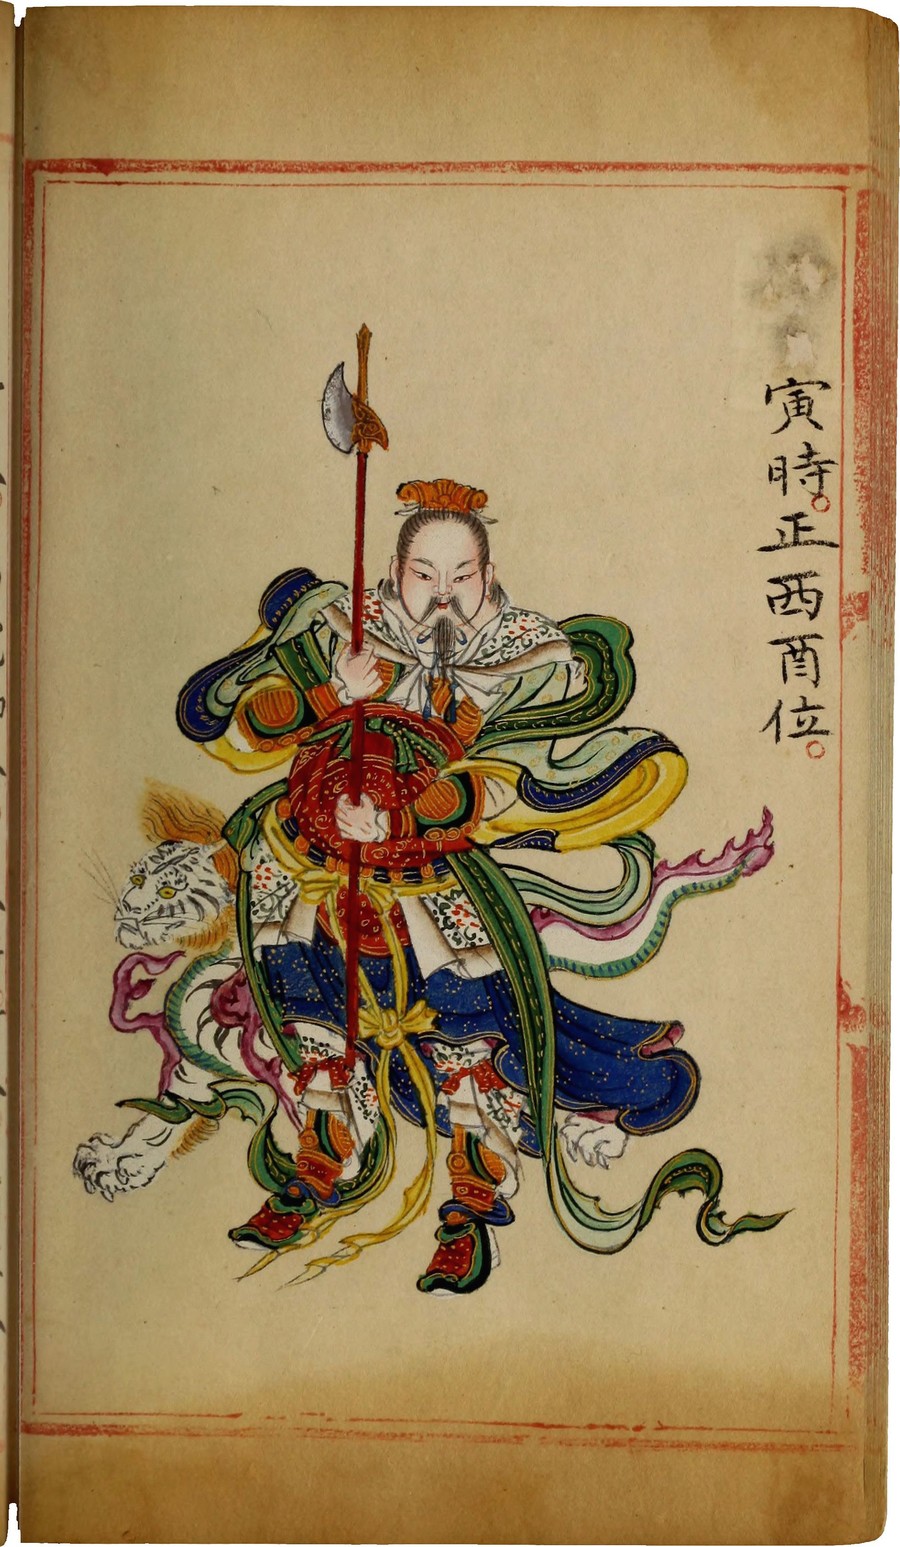 寅時。正西酉位。